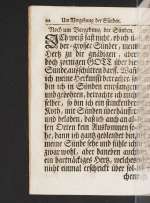 22 Um Vergebung der Sünden.
Noch um Vergebung der Sünden.
Ich weiß fast nicht, ob ich
über-grosser Sünder, mein
Hertz zu dir gnädigen, aber
doch zornigen GOTT über die
Sünde ausschütten darf. Wañ
ich meine Herkunfft betrachte,
bin ich in Sünden empfangen
und gebohren, betrachte ich mich
selber, so bin ich ein stinckender
Koth, mit Sünden überhäufft
und beladen, daß ich auch an al-
len Orten kein Auskommen se-
he, dann ich gantz geblendet bin;
meine Sünde sehe und fühle ich
zwar wohl, aber daneben auch
ein hartnäckiges Hertz, welches
nicht einmal erschrickt über sol-
chem